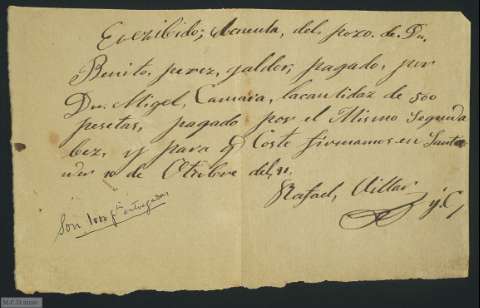 E recibido; Acuenta, del pozo. de. Dn.
Benito. perez, galdos; pagado, por
Dn. Migel, Camaia, lacantidaz de 500
pesetas, pagado por el Mismo Segunda
bez, y para q Coste firmamos en Santa
der 10 de Otubre del, 91.
Rafael, Villar
y. C
Son 1000 pts entregadas